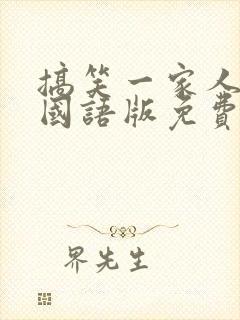 搞笑一家人
國語版免費
界先生